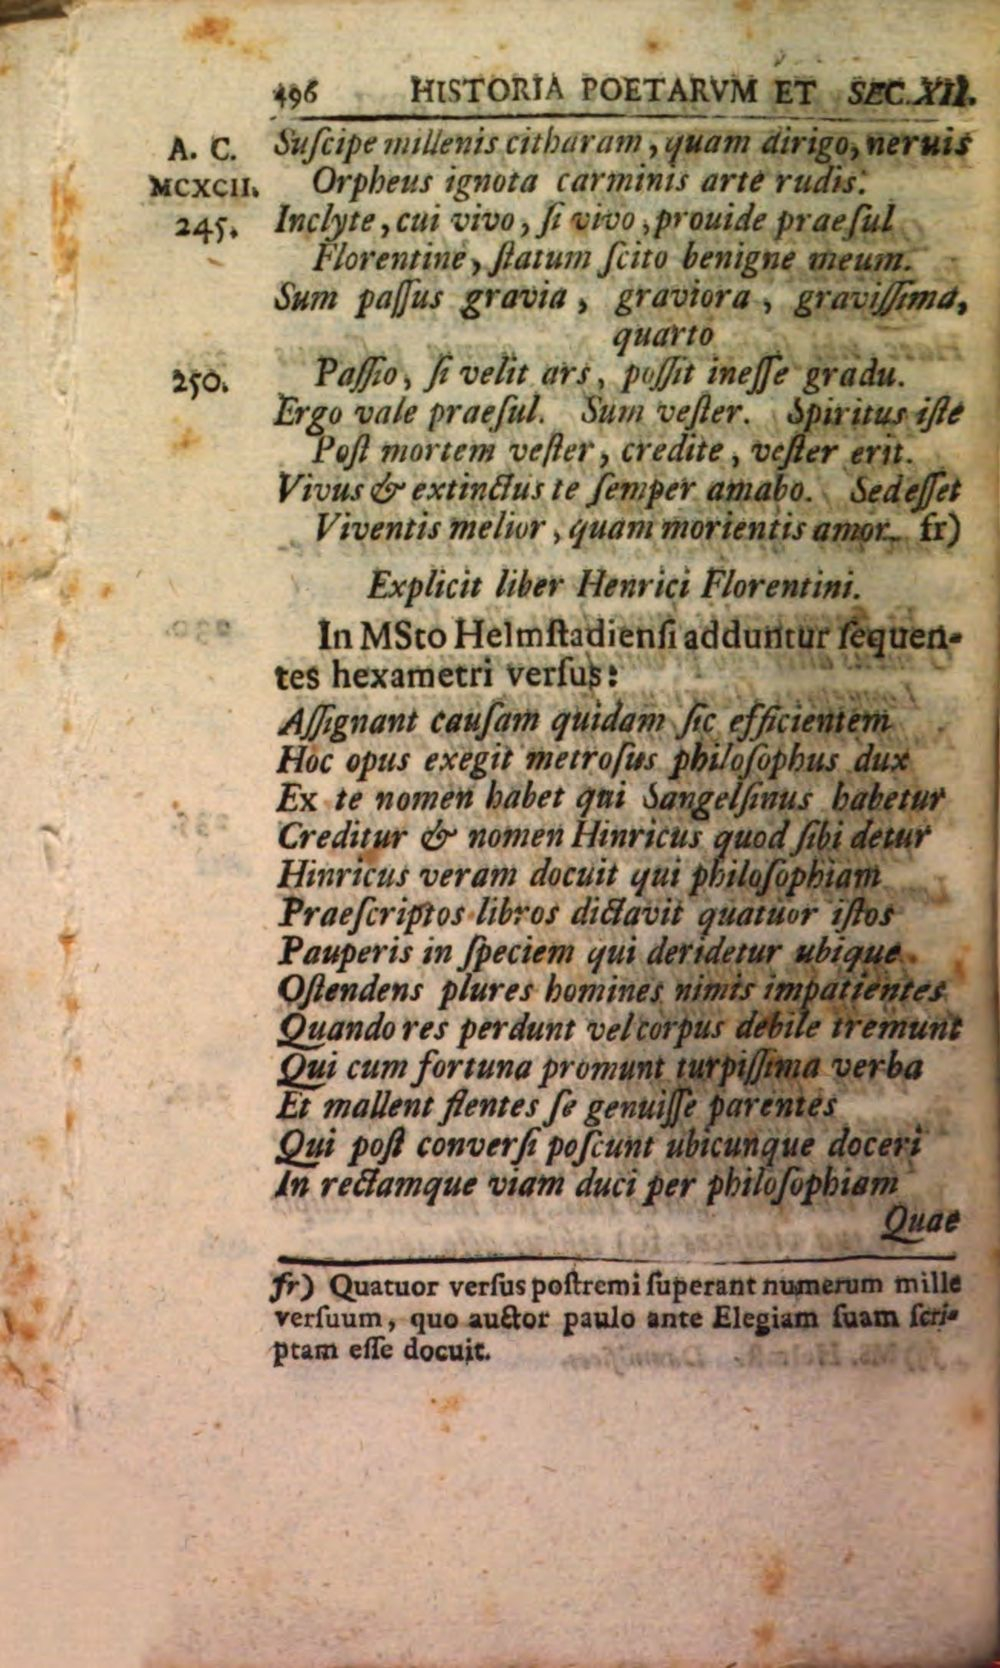 496 HISTORIA POETARVM ET SEC. XII.
A. C. Suſcipe millenis citharam, quam dirigo, neruis
MCXCII. Orpheus ignota carminis arte rudis.
245. Inclyte, cui vivo, ſi vivo, prouide praeſul
Florentine, ſtatum ſcito benigne meum.
Sum paſſus gravia, graviora, graviſſima,
quarto
250. Paſſio, ſi velit ars, poſſit ineſſe gradu.
Ergo vale praeſul. Sum veſter. Spiritus iſte
Poſt mortem veſter, credite, veſter erit.
Vivus & extinctus te ſemper amabo. Sed eſſet
Viventis melior, quam morientis amor. fr)
Explicit liber Henrici Florentini.
In MSto Helmſtadienſi adduntur ſequen-
tes hexametri verſus:
Aſſignant cauſam quidam ſic efficientem
Hoc opus exegit metroſus philoſophus dux
Ex te nomen habet qui Sangelſinus habetur
Creditur & nomen Hinricus quod ſibi detur
Hinricus veram docuit qui philoſophiam
Praeſcriptos libros dictavit quatuor iſtos
Pauperis in ſpeciem qui deridetur ubique
Oſtendens plures homines nimis impatientes
Quando res perdunt vel corpus debile tremunt
Qui cum fortuna promunt turpiſſima verba
Et mallent flentes ſe genuiſſe parentes
Qui poſt converſi poſcunt ubicunque doceri
In rectamque viam duci per philoſophiam
Quae
fr) Quatuor verſus poſtremi ſuperant numerum mille
verſuum, quo auctor paulo ante Elegiam ſuam ſcri-
ptam eſſe docuit.